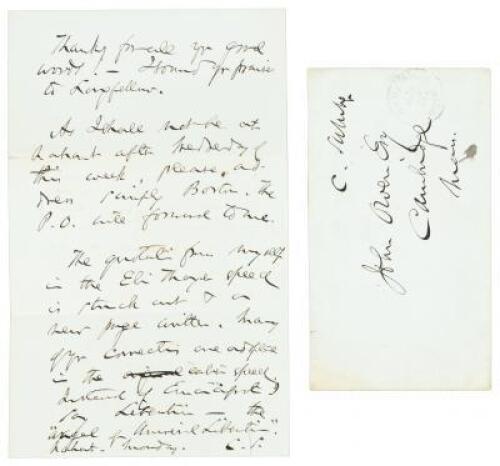 Thanks for all yr good
words! — I sound yr praise
to Longfellow.
As I shall not be at
Nahant after Wednesday of
this week, please ad-
dress simply Boston. The
P.O. will forward to me.
The quotation from myself
in the Eli Thayer speech
is struck out & a
new page written. Many
of yr corrections are adopted
in the earlier speech
Instead of Emancipation I
say Liberation — the
"angel of Universal Liberation".
Nahant. Monday. C. S.
C. Sumner
John Owen Esq
Cambridge
Mass.